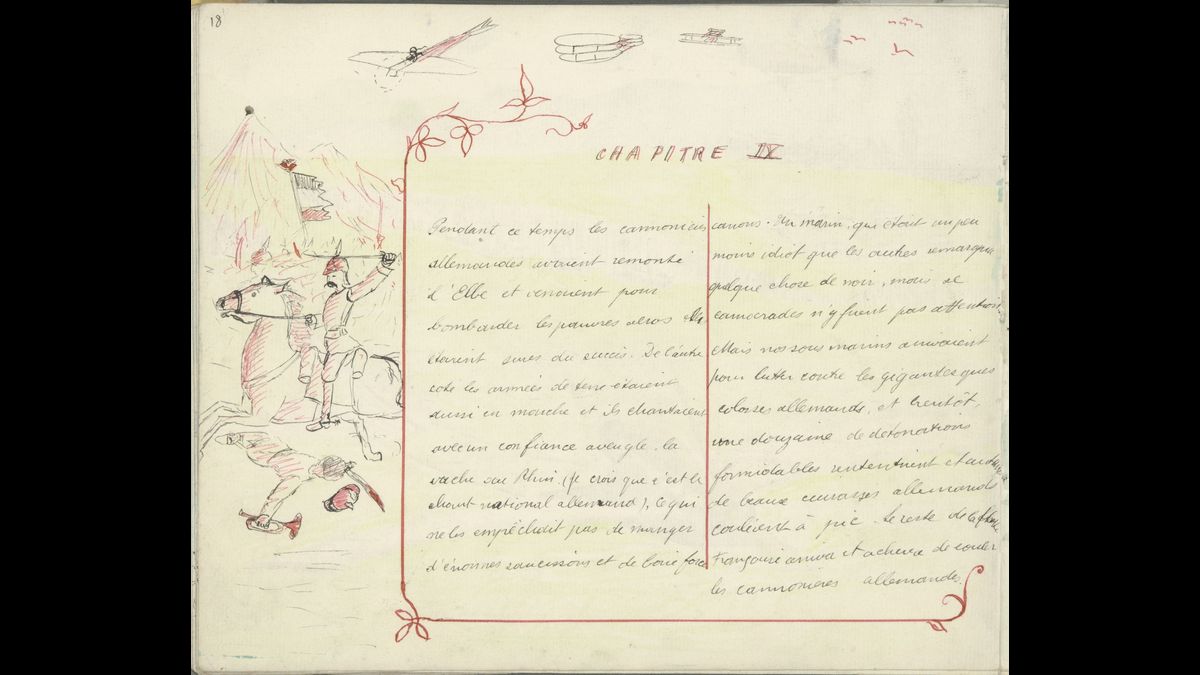 18
CHAPITRE IX
Pendant ce temps les cannonières
allemandes avaient remonté
l'Elbe et venaient pour
bombarder les pauvres aéros
étaient sures du succès. De l'autre
coté les armées de terre étaient
aussi en marche et ils chantaient
avec un confiance aveugle, la
vache sur Rhin (je crois que c'est le
chant national allemand), ce qui
ne les empêchait pas de manger
d'énormes saucissons et de boire force
canons. Un marin, qui était un peu
moins idiot que les autres remarqua
quelque chose de noir, mais se
camarades n'y firent pas attention.
Mais nos sous marins arrivaient
pour lutter contre les gigantesques
colosses allemands, et bientôt,
une douzaine de détonations
formidables retentirent et
de beaux cuirassés allemands
coulèrent à pic. Le reste de la flotte
Française arriva et acheva de couler
les cannonières allemandes.